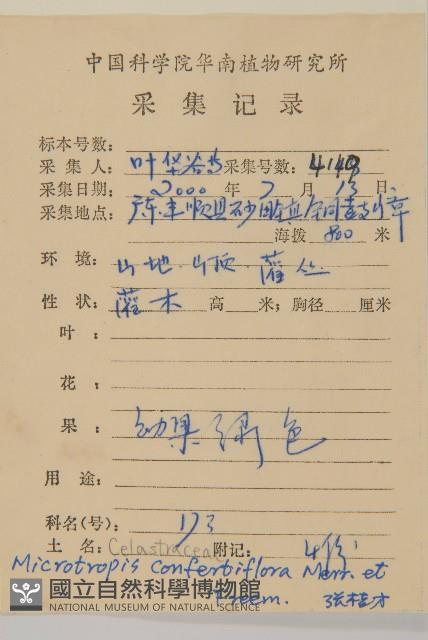 中国科学院华南植物研究所
采集记录
标本号数:
采集人: 叶华谷等 采集号数: 4149
采集日期: 2000 年 7 月 13 日
采集地点: 广东.丰顺县砂田镇
海拨 800 米
环境: 山地.山顶.灌丛
性状: 灌木 高 米; 胸径 厘米
叶:
花:
果: 幼果绿色
用途:
科名(号): 173
土名: Celastraceae 附记: 4份
Microtropis confertiflora Merr. et
Freem. 张桂才
國立自然科學博物館
NATIONAL MUSEUM OF NATURAL SCIENCE